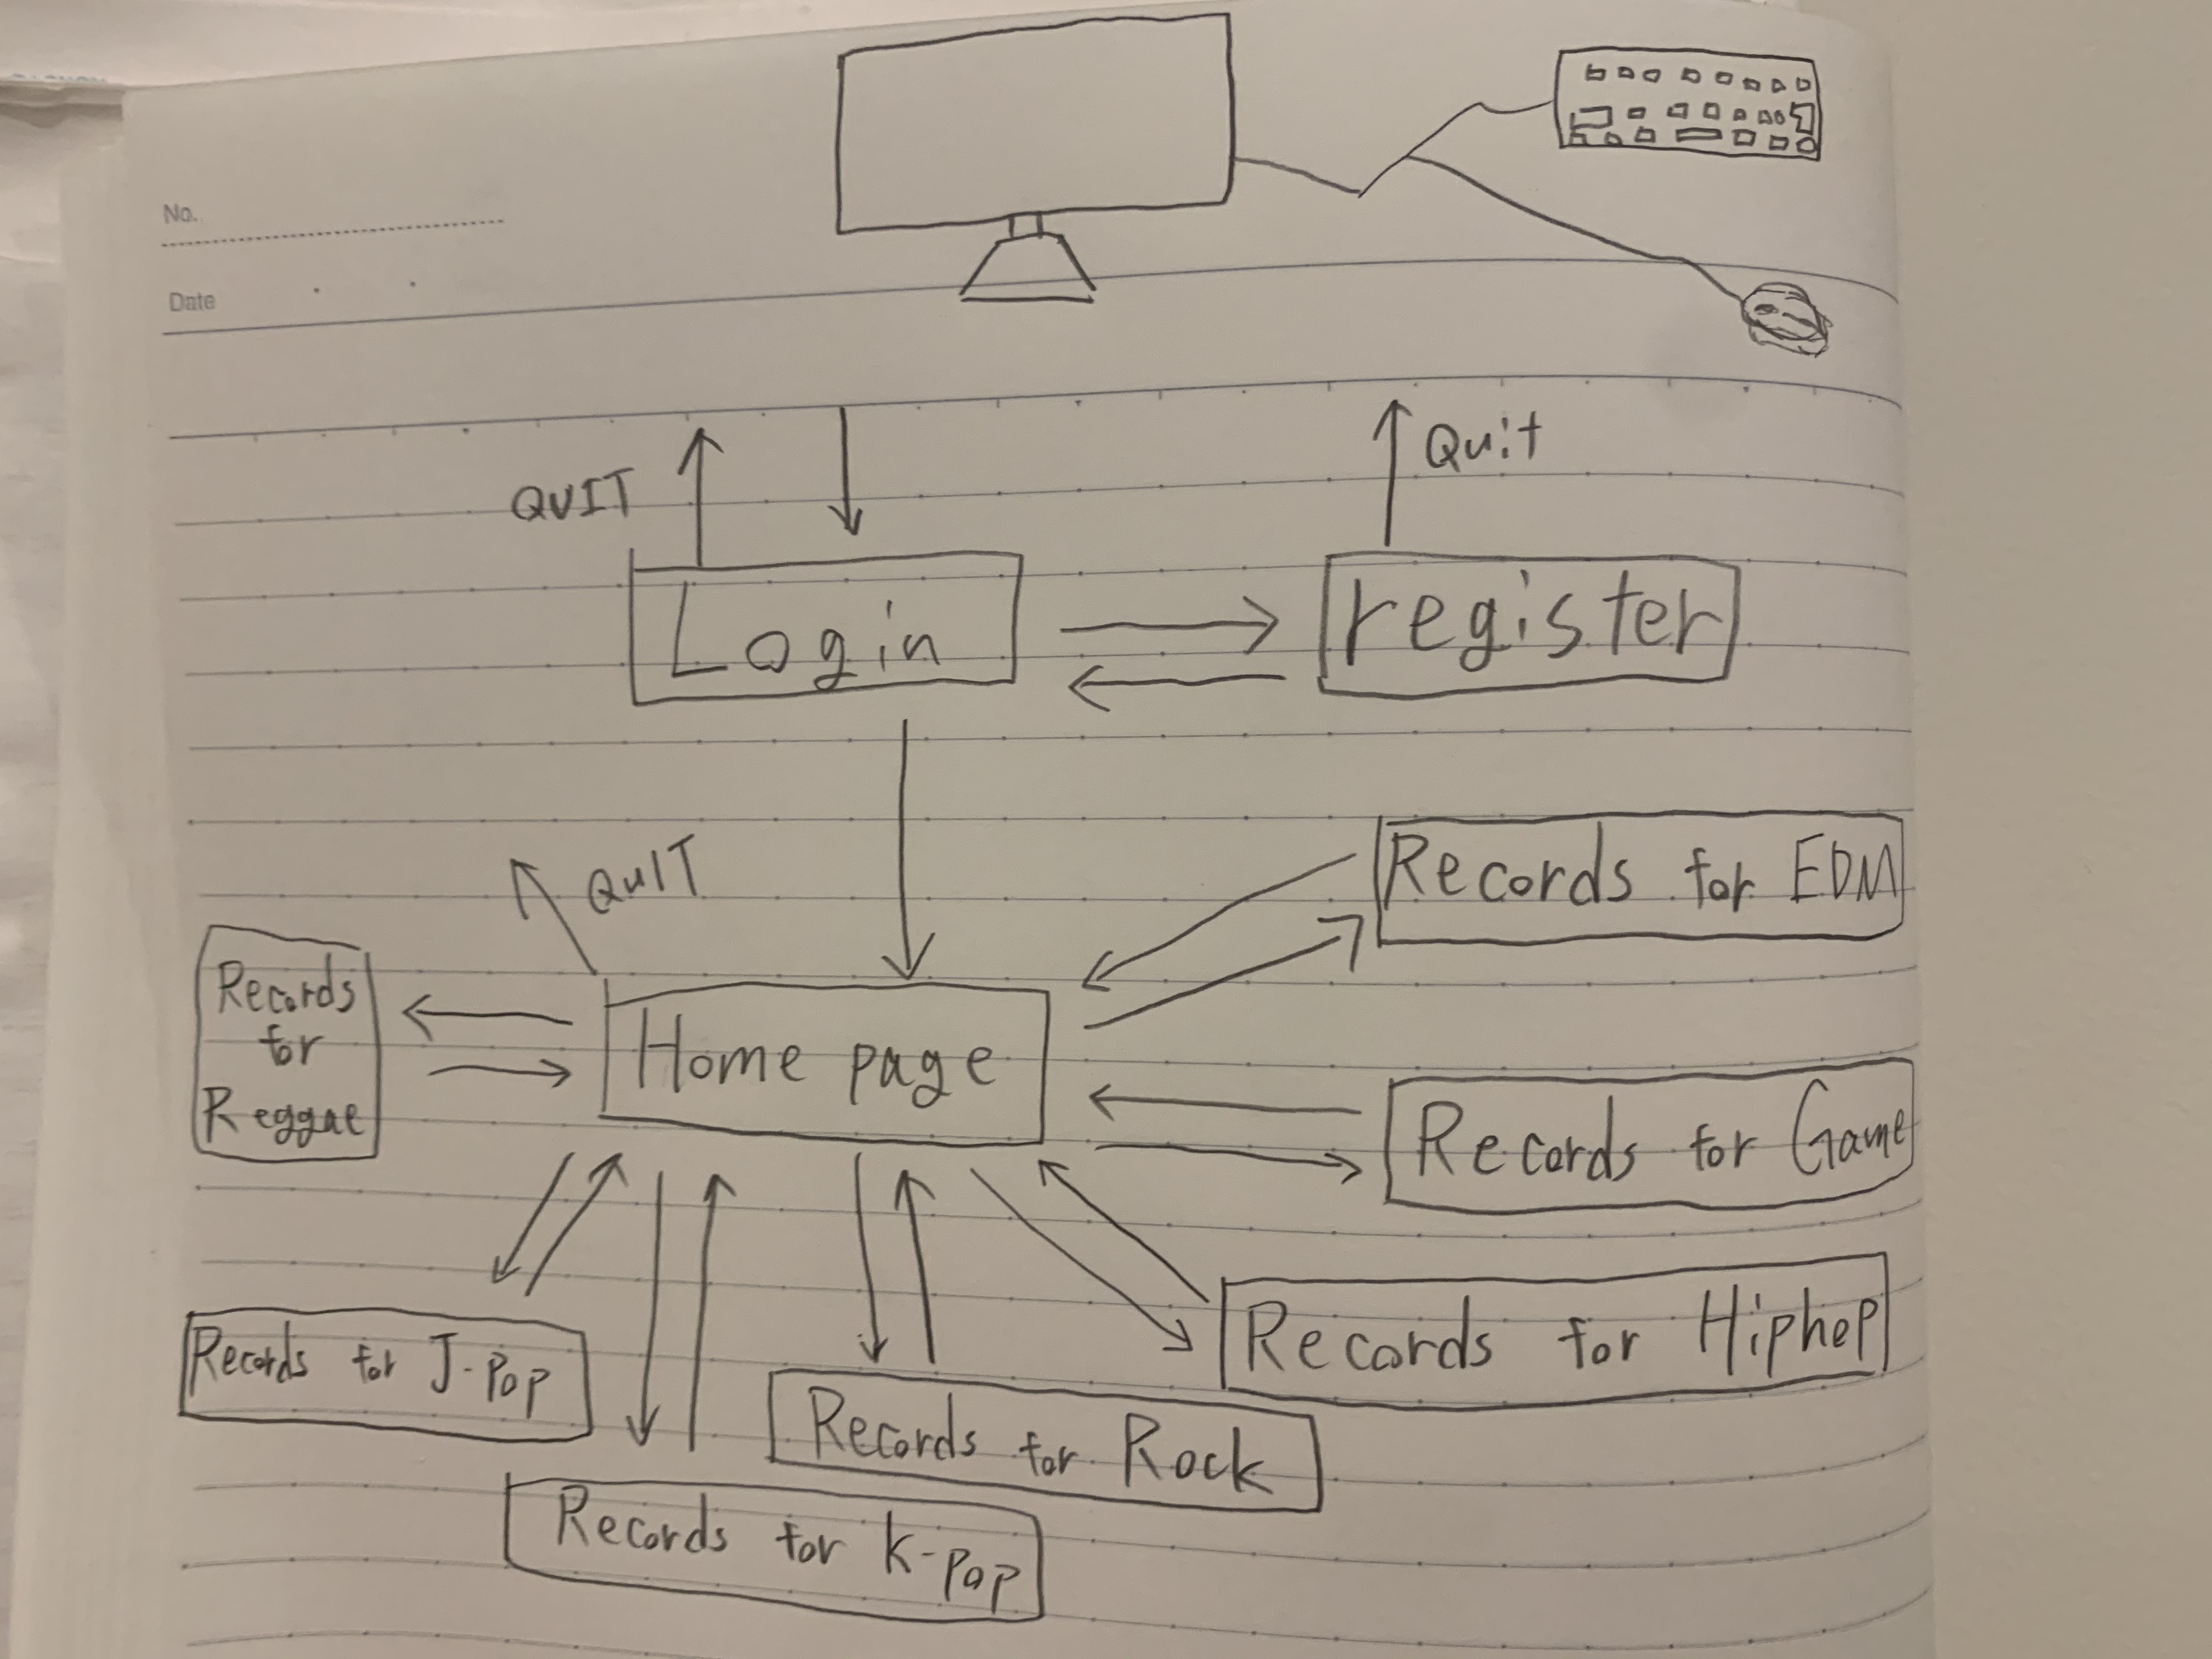 No.
Date
QUIT
Quit
Login
register
QUIT
Records for EDM
Records
for
Reggae
Home page
Records for Game
Records for Hiphop
Records for J-Pop
Records for Rock
Records for K-pop